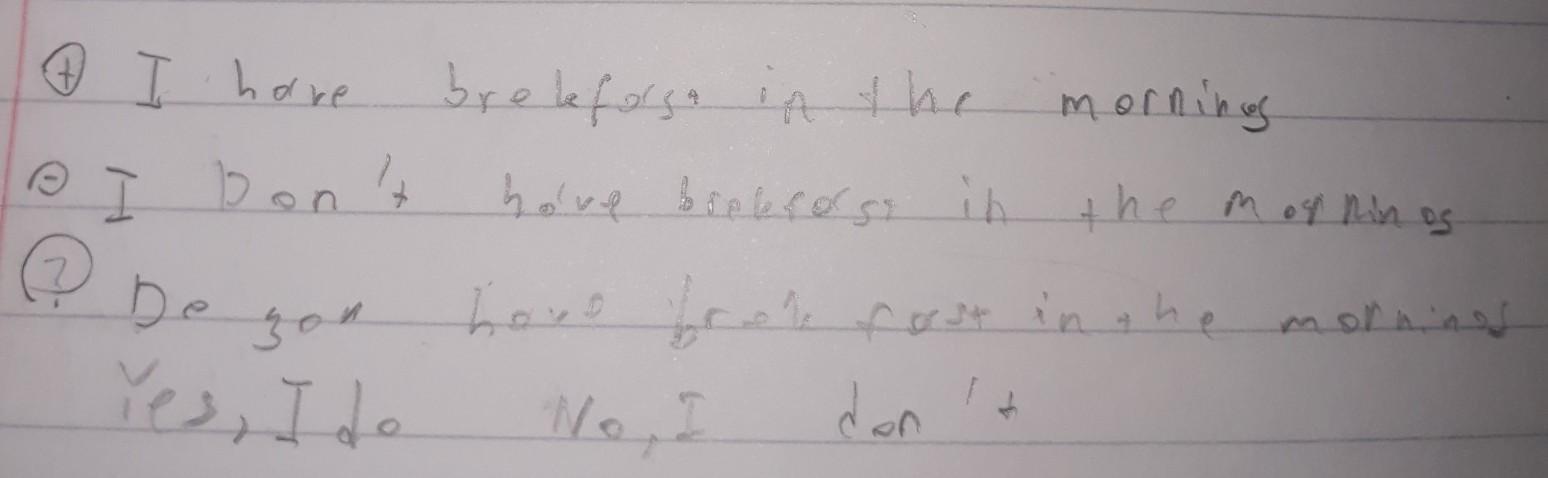 (+) I have brekfast in the mornings
(-) I Don't have brekfast in the mornings
(?) Do you have brekfast in the mornings
Yes, I do No, I don't